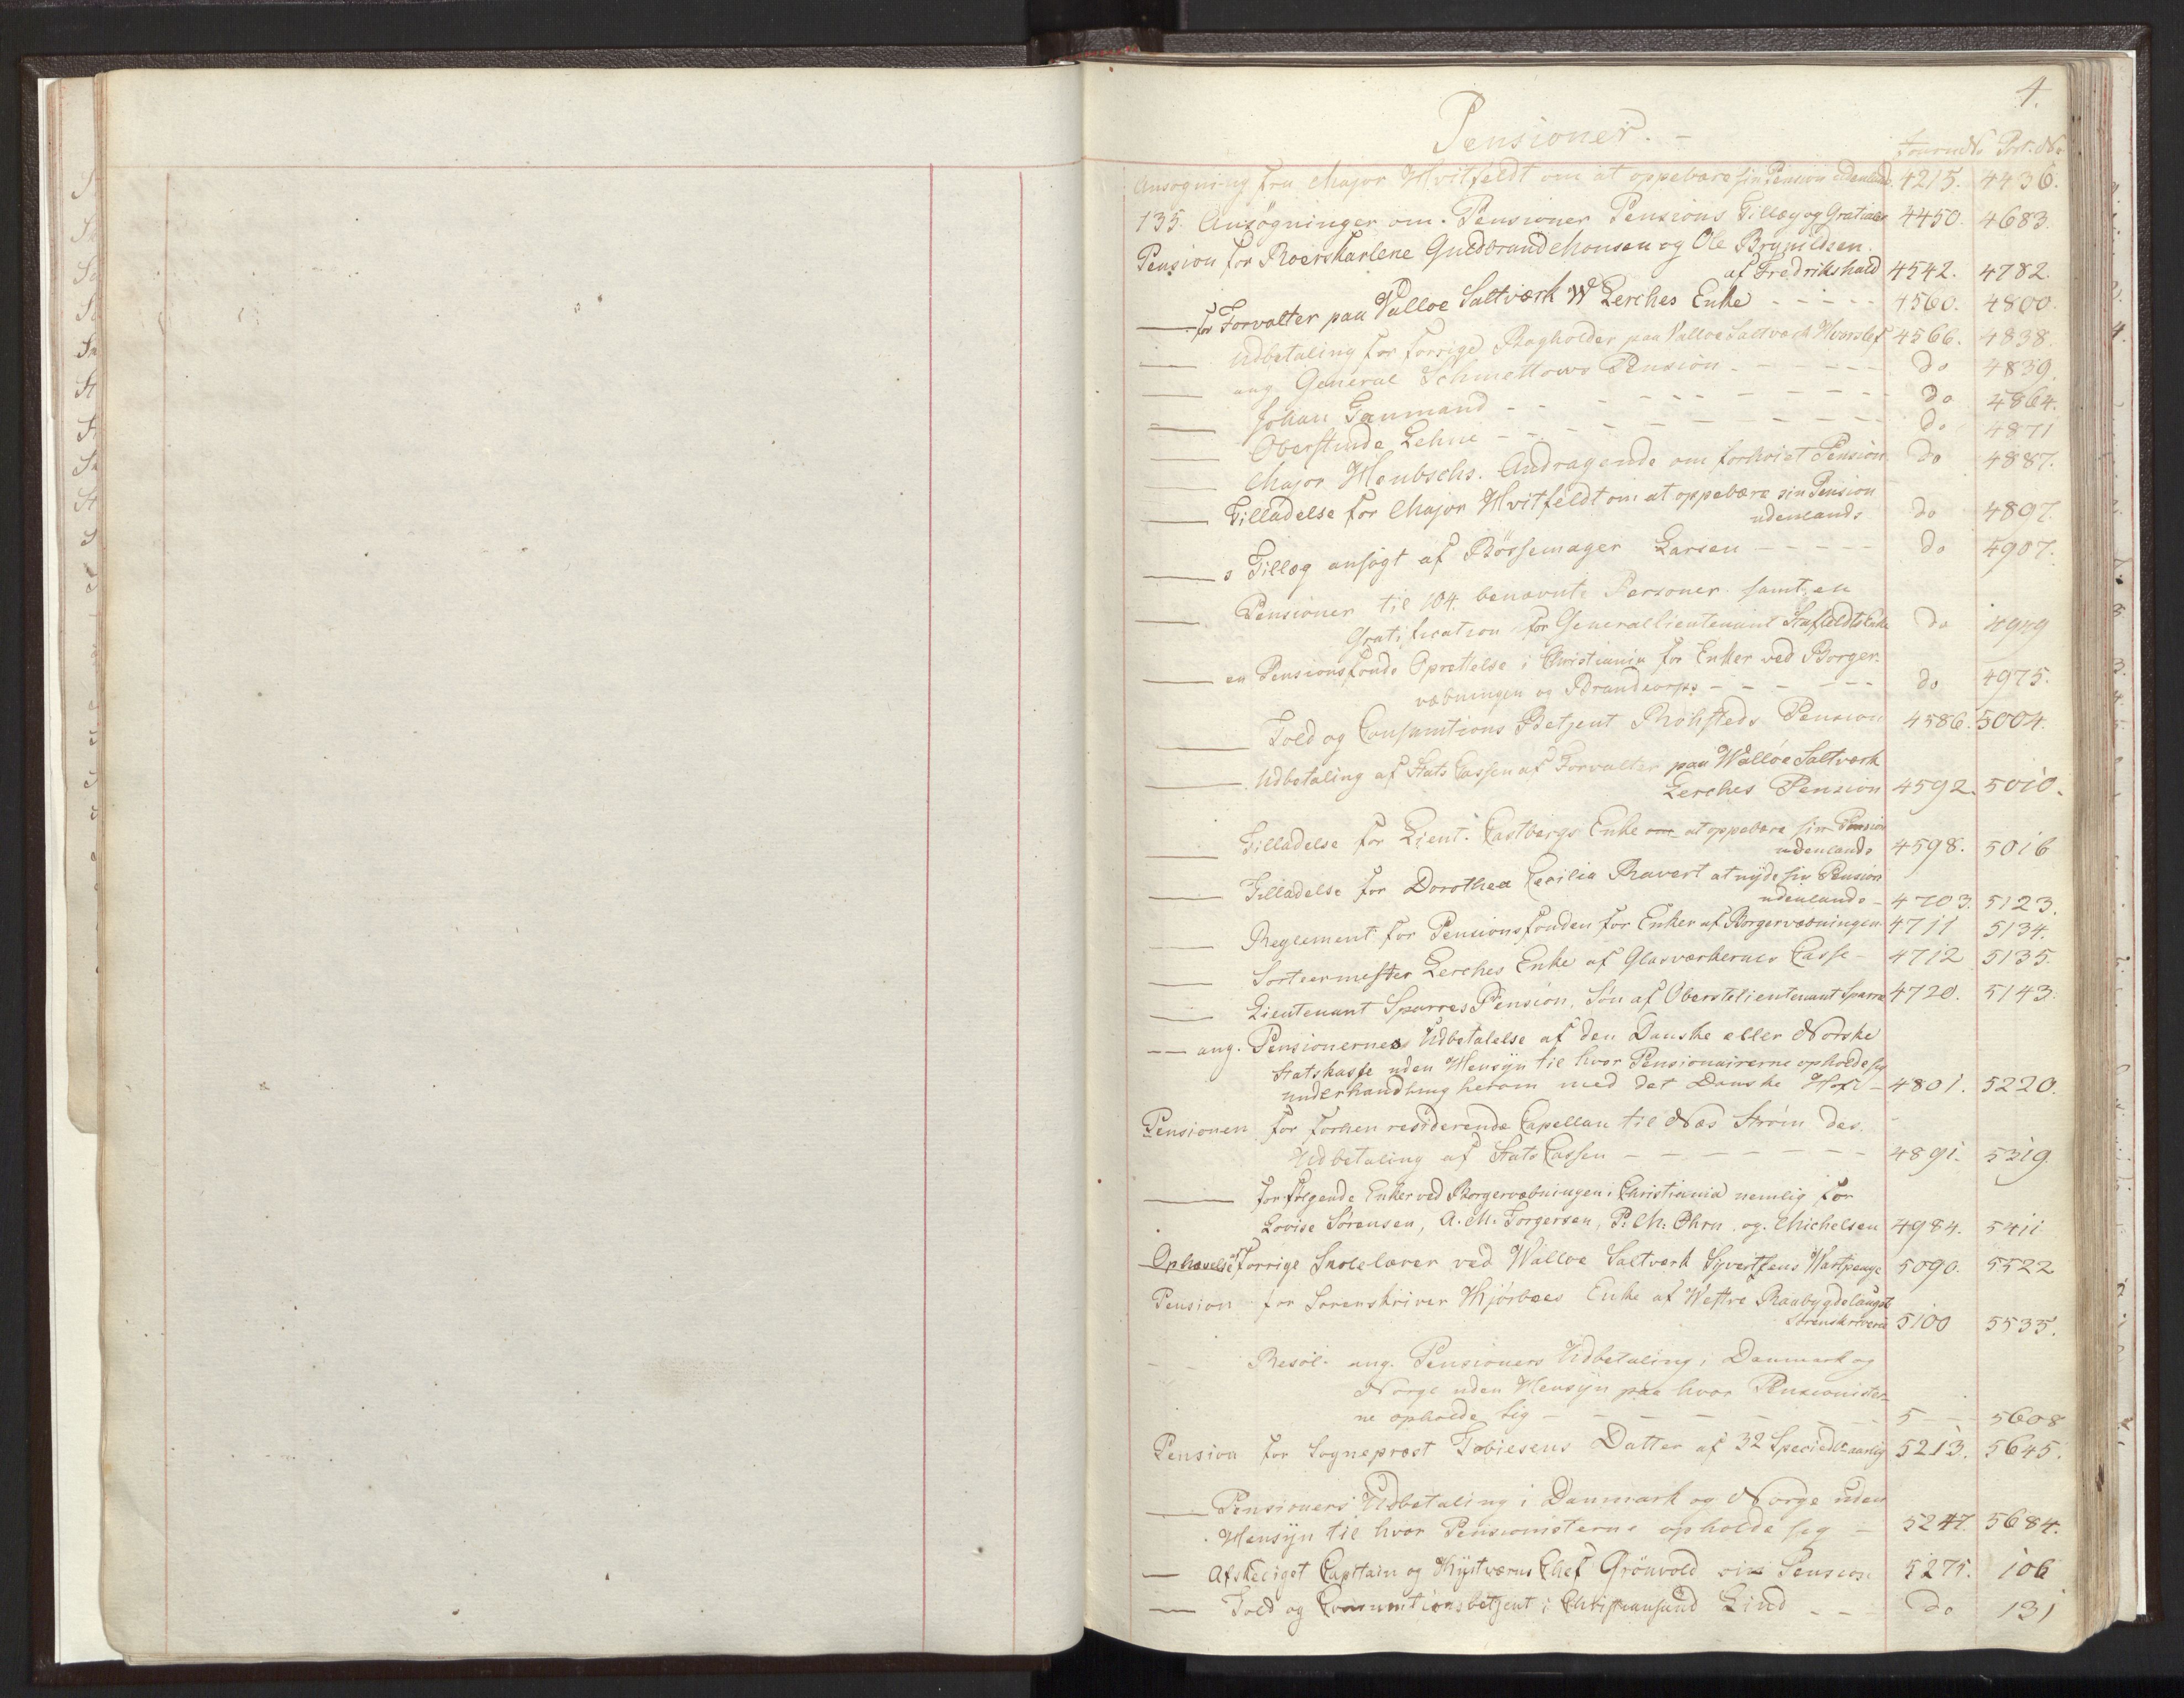 4.
Pensioner. -
Journ No Port. No
Ansogning fra Major Hvitfeldt om at oppebære sin Pension udenlands 4215. 4436.
135. Ansøgninger om Pensioner Pensions Tillæg og Gratialer 4450. 4683.
Pension for Roerskarlene Guldbrand Monsen og Ole Brynildsen
af Fredrikshald 4542. 4782.
— for Forvalter paa Valloe Saltværk W Lerches Enke - - - - - 4560. 4800.
— Udbetaling for forrige Bogholder paa Valloe Saltværk 4566. 4838.
— ang General Schmettows Pension - - - - - - do 4839.
— Johan Gaumand - - - - - - - - - do 4864.
— Oberstinde Lehne - - - - - - - - - do 4871
— Major Heubschs. Andragende om forhøiet Pension do 4887.
— Tilladelse for Major Hvitfeldt om at oppebære sin Pension
udenlands do 4897.
— s Tillæg ansøgt af Bøssemager Larsen - - - - - do 4907.
— Pensioner til 104 benævnte Personer samt en
Gratification for Generallieutenant Staffeldts Enke do 4949
— en Pensionsfonds Oprettelse i Christiania for Enker ved Borger-
væbningen og Brandcorps - - - - - - do 4975.
— Told og Consumtions Betjent Pension 4586. 5004.
— Udbetaling af Stats Cassen af Forvalter paa Walløe Saltværk
Lerches Pension 4592. 5010.
— Tilladelse for Lieut. Castbergs Enke om at oppebære sin Pension
udenlands 4598. 5016
— Tilladelse for Dorothea Cecilia Ravert at nyde sin Pension
udenlands - 4703. 5123.
— Reglement for Pensionsfonden for Enker af Borgervæbningen 4711 5134.
— Sorteermester Lerches Enke af Glasværkernes Casse - 4712 5135.
— Lieutenant Sparres Pension, Søn af Oberstelieutenant Sparre 4720. 5143.
— ang. Pensionernes Udbetalelse af den Danske eller Norske
Statskasse uden Hensyn til hvor Pensionairerne opholde sig
underhandling herom med det Danske Hof - 4801. 5220.
Pensionen for forhen residerende Capellan til Næs Strøm des
Udbetaling af Stats Cassen - - - - - - - 4891. 5319.
— for følgende Enker ved Borgervæbningen i Christiania nemlig for
Lovise Sørensen, A. M. Torgersen, P. M. Ohrn og Michelsen 4984. 5411.
Ophævelse af forrige Skolelærer ved Walloe Saltværk Syvertsens Wartpenge 5090. 5522
Pension for Sorenskriver Hjørboes Enke af Westre Raabygdelaugets
Sorenskriverie 5100 5535.
— Resol. ang. Pensioners Udbetaling i Danmark og
Norge uden Hensyn paa hvor Pensionister-
ne opholde sig - - - - - - - 5 — 5608
Pension for Sogneprest Tobiesens Datter af 32 Speciedlr aarlig 5213. 5645.
— Pensioners Udbetaling i Danmark og Norge uden
Hensyn til hvor Pensionisterne opholde sig - 5247. 5684.
— Afskediget Capitain og Kystværns Chef Grönvold sin Pension 5275. 106
— Told og Consumtionsbetjent i Christiansund Lind - - - do 131